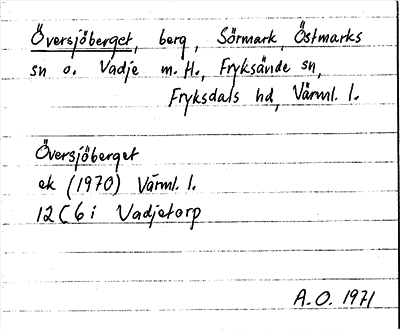 Översjöberget, berg, Sörmark, Östmarks
sn o. Vadje m. H., Fryksände sn,
Fryksdals hd, Värml. l.
Översjöberget
ek (1970) Värml. l.
12 C 6 i Vadjetorp
A.O. 1971